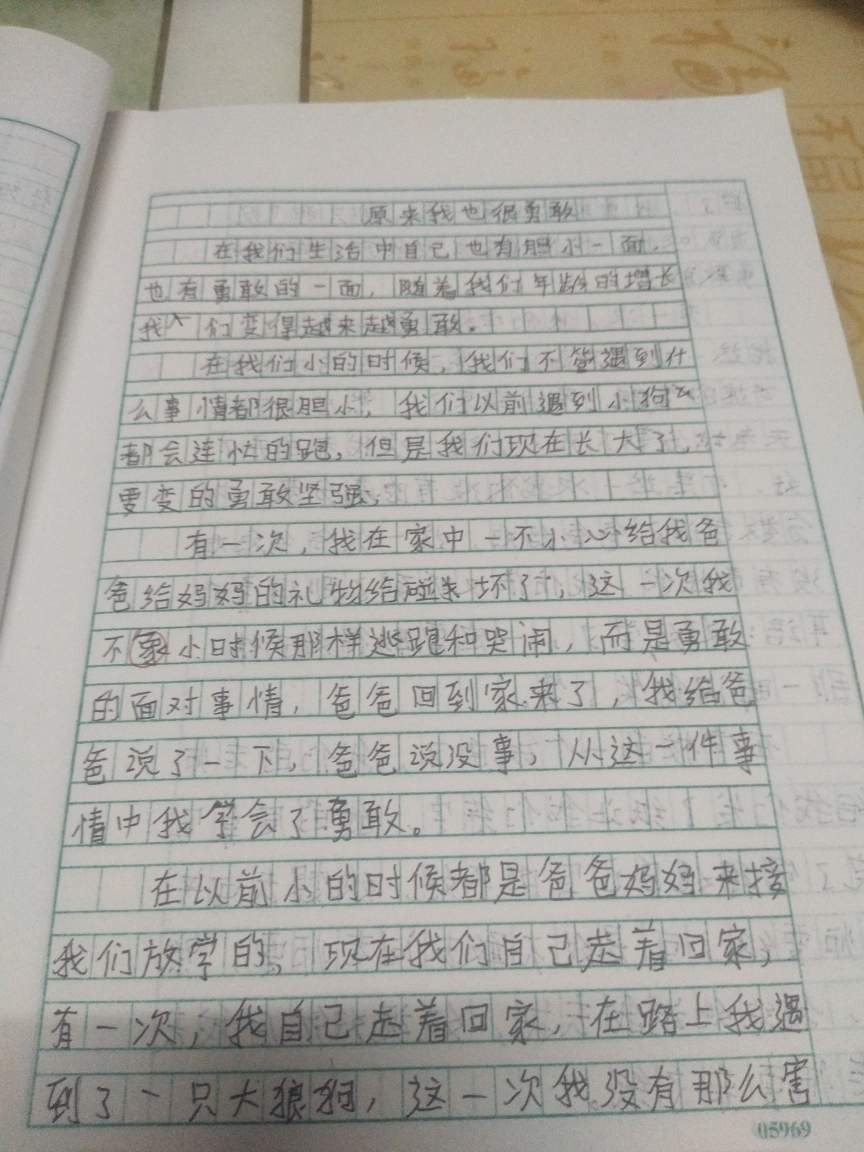 原来我也很勇敢
在我们生活中自己也有胆小一面，
也有勇敢的一面，随着我们年龄的增长
我们变得越来越勇敢。
在我们小的时候，我们不管遇到什
么事情都很胆小，我们以前遇到小狗
都会连忙的跑，但是我们现在长大了，
要变的勇敢坚强，
有一次，我在家中一不小心给我爸
爸给妈妈的礼物给碰坏了，这一次我
不象小时候那样逃跑和哭闹，而是勇敢
的面对事情，爸爸回到家来了，我给爸
爸说了一下，爸爸说没事，从这一件事
情中我学会了勇敢。
在以前小的时候都是爸爸妈妈来接
我们放学的，现在我们自己走着回家，
有一次，我自己走着回家，在路上我遇
到了一只大狼狗，这一次我没有那么害
05969